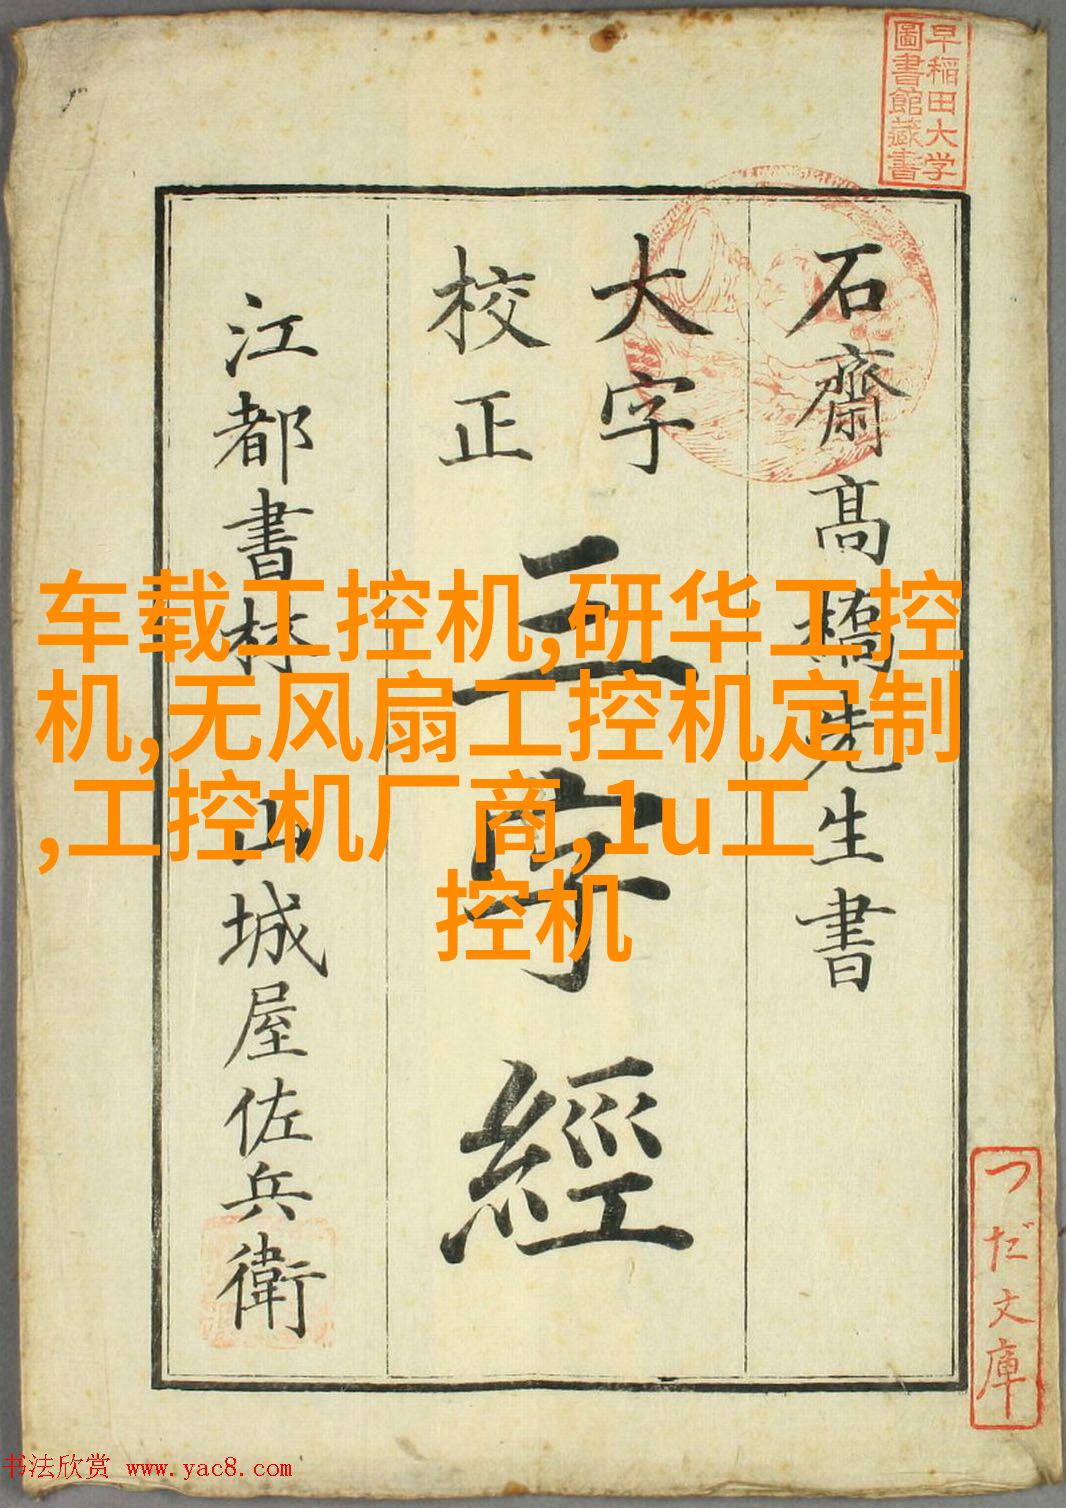 早稲田大学
圖書館藏書
石齋髙橋先生書
大字
校正
三字經
江都書林 山城屋佐兵衛
车载工控机,研华工控
机,无风扇工控机定制
,工控机厂商,1u工
控机
つだ文庫
书法欣赏 www.yac8.com